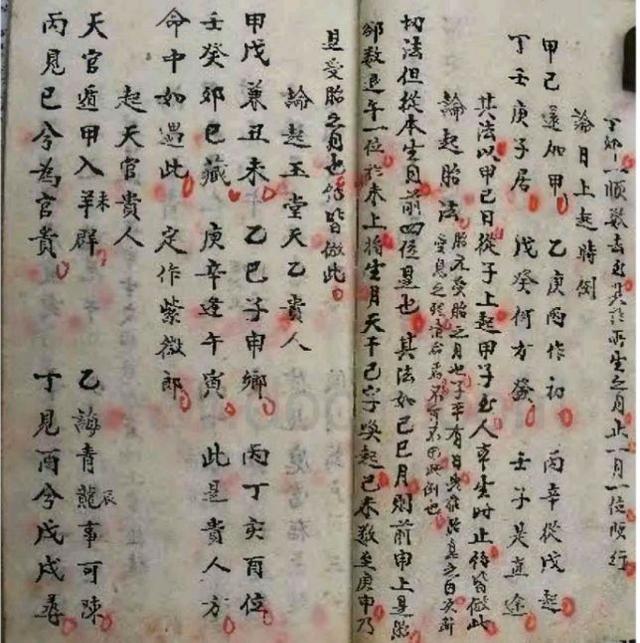 一順數去其於所生之月止一月一位順行
論日上起時倒
甲己還加甲 乙庚丙作初 丙辛從戊起
丁壬庚子居 戊癸何方發 壬子是直途
其法以甲己日從子上起甲子至人家生時止餘皆倣此
論起胎法 胎元受胎之月也子平有曰先推胎息之由次所
切法但從本生月前四位是也 其法如己巳月則前申上是胎
卻數退午一位於未上將生月天干己字喚起己未數至庚申乃
是受胎之月也餘皆倣此
論起玉堂天乙貴人
甲戊兼丑未 乙己子申鄉 丙丁亥酉位
壬癸卯巳藏 庚辛逢午寅 此是貴人方
命中如遇此 定作紫微郎
起天官貴人
天官遁甲入羊未群 乙誨青龍辰事可陳
丙見巳兮為官貴 丁見酉兮戊戌尋